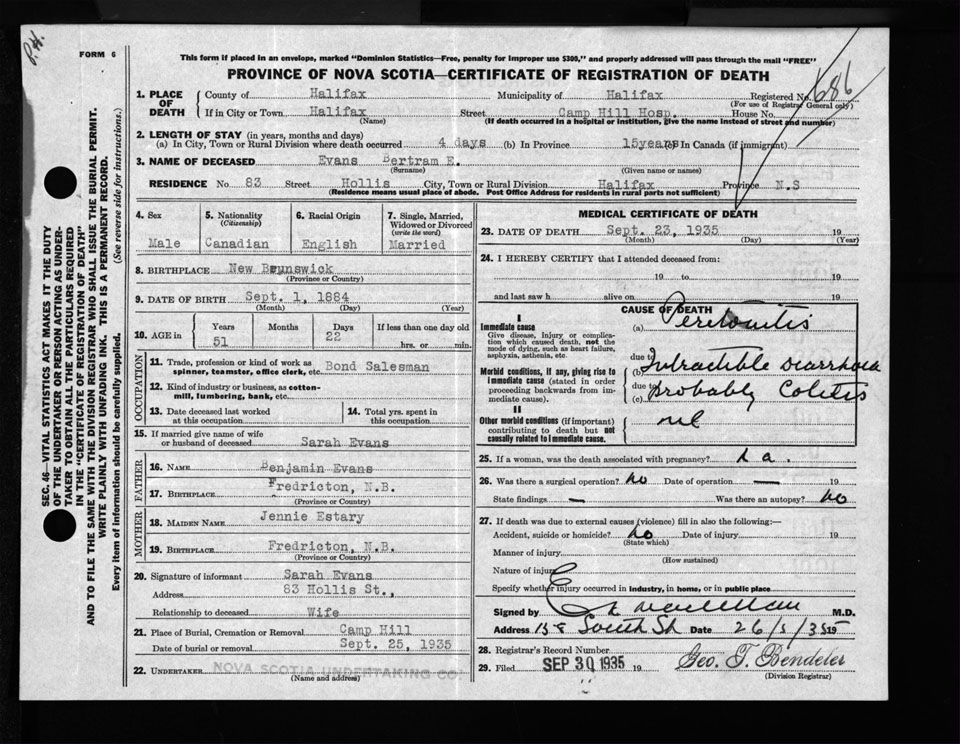 P.H.
FORM 6
This form if placed in an envelope, marked "Dominion Statistics—Free, penalty for improper use $300," and properly addressed will pass through the mail "FREE"
PROVINCE OF NOVA SCOTIA—CERTIFICATE OF REGISTRATION OF DEATH
686
1. PLACE OF DEATH County of Halifax Municipality of Halifax Registered No.
(For use of Registrar General only)
If in City or Town Halifax Street Camp Hill Hosp. House No.
(Name) (If death occurred in a hospital or institution, give the name instead of street and number)
2. LENGTH OF STAY (in years, months and days)
(a) In City, Town or Rural Division where death occurred 4 days (b) In Province 15years (c) In Canada (if immigrant)
3. NAME OF DECEASED Evans Bertram E.
(Surname) (Given name or names)
RESIDENCE No. 83 Street Hollis City, Town or Rural Division Halifax Province N.S
(Residence means usual place of abode. Post Office Address for residents in rural parts not sufficient)
4. Sex 5. Nationality (Citizenship) 6. Racial Origin 7. Single, Married, Widowed or Divorced (write the word)
Male Canadian English Married
8. BIRTHPLACE New Brunswick
(Province or Country)
9. DATE OF BIRTH Sept. 1, 1884
(Month) (Day) (Year)
10. AGE in Years Months Days If less than one day old
51 22 hrs. or min.
OCCUPATION
11. Trade, profession or kind of work as spinner, teamster, office clerk, etc. Bond Salesman
12. Kind of industry or business, as cotton-mill, lumbering, bank, etc.
13. Date deceased last worked at this occupation
14. Total yrs. spent in this occupation
15. If married give name of wife or husband of deceased Sarah Evans
FATHER
16. NAME Benjamin Evans
17. BIRTHPLACE Fredricton, N.B.
(Province or Country)
MOTHER
18. MAIDEN NAME Jennie Estary
19. BIRTHPLACE Fredricton, N.B.
(Province or Country)
20. Signature of informant Sarah Evans
Address 83 Hollis St.,
Relationship to deceased Wife
21. Place of Burial, Cremation or Removal Camp Hill
Date of burial or removal Sept. 25, 1935
22. UNDERTAKER NOVA SCOTIA UNDERTAKING CO
(Name and address)
MEDICAL CERTIFICATE OF DEATH
23. DATE OF DEATH Sept. 23, 1935
(Month) (Day) (Year)
24. I HEREBY CERTIFY that I attended deceased from:
19 to 19
and last saw h alive on 19
CAUSE OF DEATH
I
Immediate cause
Give disease, injury or complication which caused death, not the mode of dying, such as heart failure, asphyxia, asthenia, etc.
(a) Peretonitis
due to
Morbid conditions, if any, giving rise to immediate cause (stated in order proceeding backwards from immediate cause).
(b) Intractible Diarrhoea
due to
(c) Probably Colitis
II
Other morbid conditions (if important) contributing to death but not causally related to immediate cause.
nil
25. If a woman, was the death associated with pregnancy?
26. Was there a surgical operation? No Date of operation — 19
State findings — Was there an autopsy? No
27. If death was due to external causes (violence) fill in also the following:—
Accident, suicide or homicide? No Date of injury 19
(State which)
Manner of injury
(How sustained)
Nature of injury
Specify whether injury occurred in industry, in home, or in public place
Signed by M.D.
Address 158 South St Date 19
28. Registrar's Record Number
29. Filed SEP 30 1935 19 Geo. T. Bendeler
(Division Registrar)
SEC. 46—VITAL STATISTICS ACT MAKES IT THE DUTY OF THE UNDERTAKER OR PERSON ACTING AS UNDERTAKER TO OBTAIN ALL THE PARTICULARS REQUIRED IN THE "CERTIFICATE OF REGISTRATION OF DEATH"
AND TO FILE THE SAME WITH THE DIVISION REGISTRAR WHO SHALL ISSUE THE BURIAL PERMIT.
WRITE PLAINLY WITH UNFADING INK. THIS IS A PERMANENT RECORD.
Every item of information should be carefully supplied. (See reverse side for instructions.)